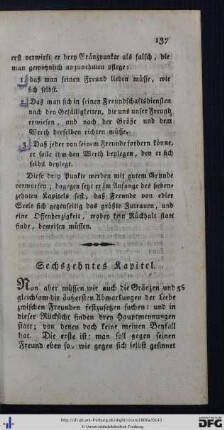 137
erst verwirft er drey Gränzpunkte als falsch, die
man gewöhnlich anzunehmen pflege:
1. daß man seinen Freund lieben müsse, wie
sich selbst.
2. Daß man sich in seinen Freundschaftsdiensten
nach den Gefälligkeiten, die uns unser Freund
erwiesen und nach der Größe und dem
Werth derselben richten müsse.
3. Daß jeder von seinem Freunde fordern könne,
er solle ihm den Werth beylegen, den er sich
selbst beylegt.
Diese drey Punkte werden mit gutem Grunde
verworfen, dagegen setzt er im Anfange des sieben-
zehnten Kapitels fest, daß Freunde von edler
Seele sich gegenseitig das größte Zutrauen, und
eine Offenherzigkeit, wobey kein Rückhalt statt
findet, beweisen müssen.
Sechszehntes Kapitel.
Nun aber müssen wir auch die Gränzen und
gleichsam die äußersten Abmarkungen der Liebe
zwischen Freunden festzusetzen suchen: und in
dieser Rücksicht finden drey Hauptmeynungen
statt; von denen doch keine meinen Beyfall
hat. Die erste ist: man soll gegen seinen
Freund eben so, wie gegen sich selbst gesinnt
© Universitätsbibliothek Freiburg
DFG